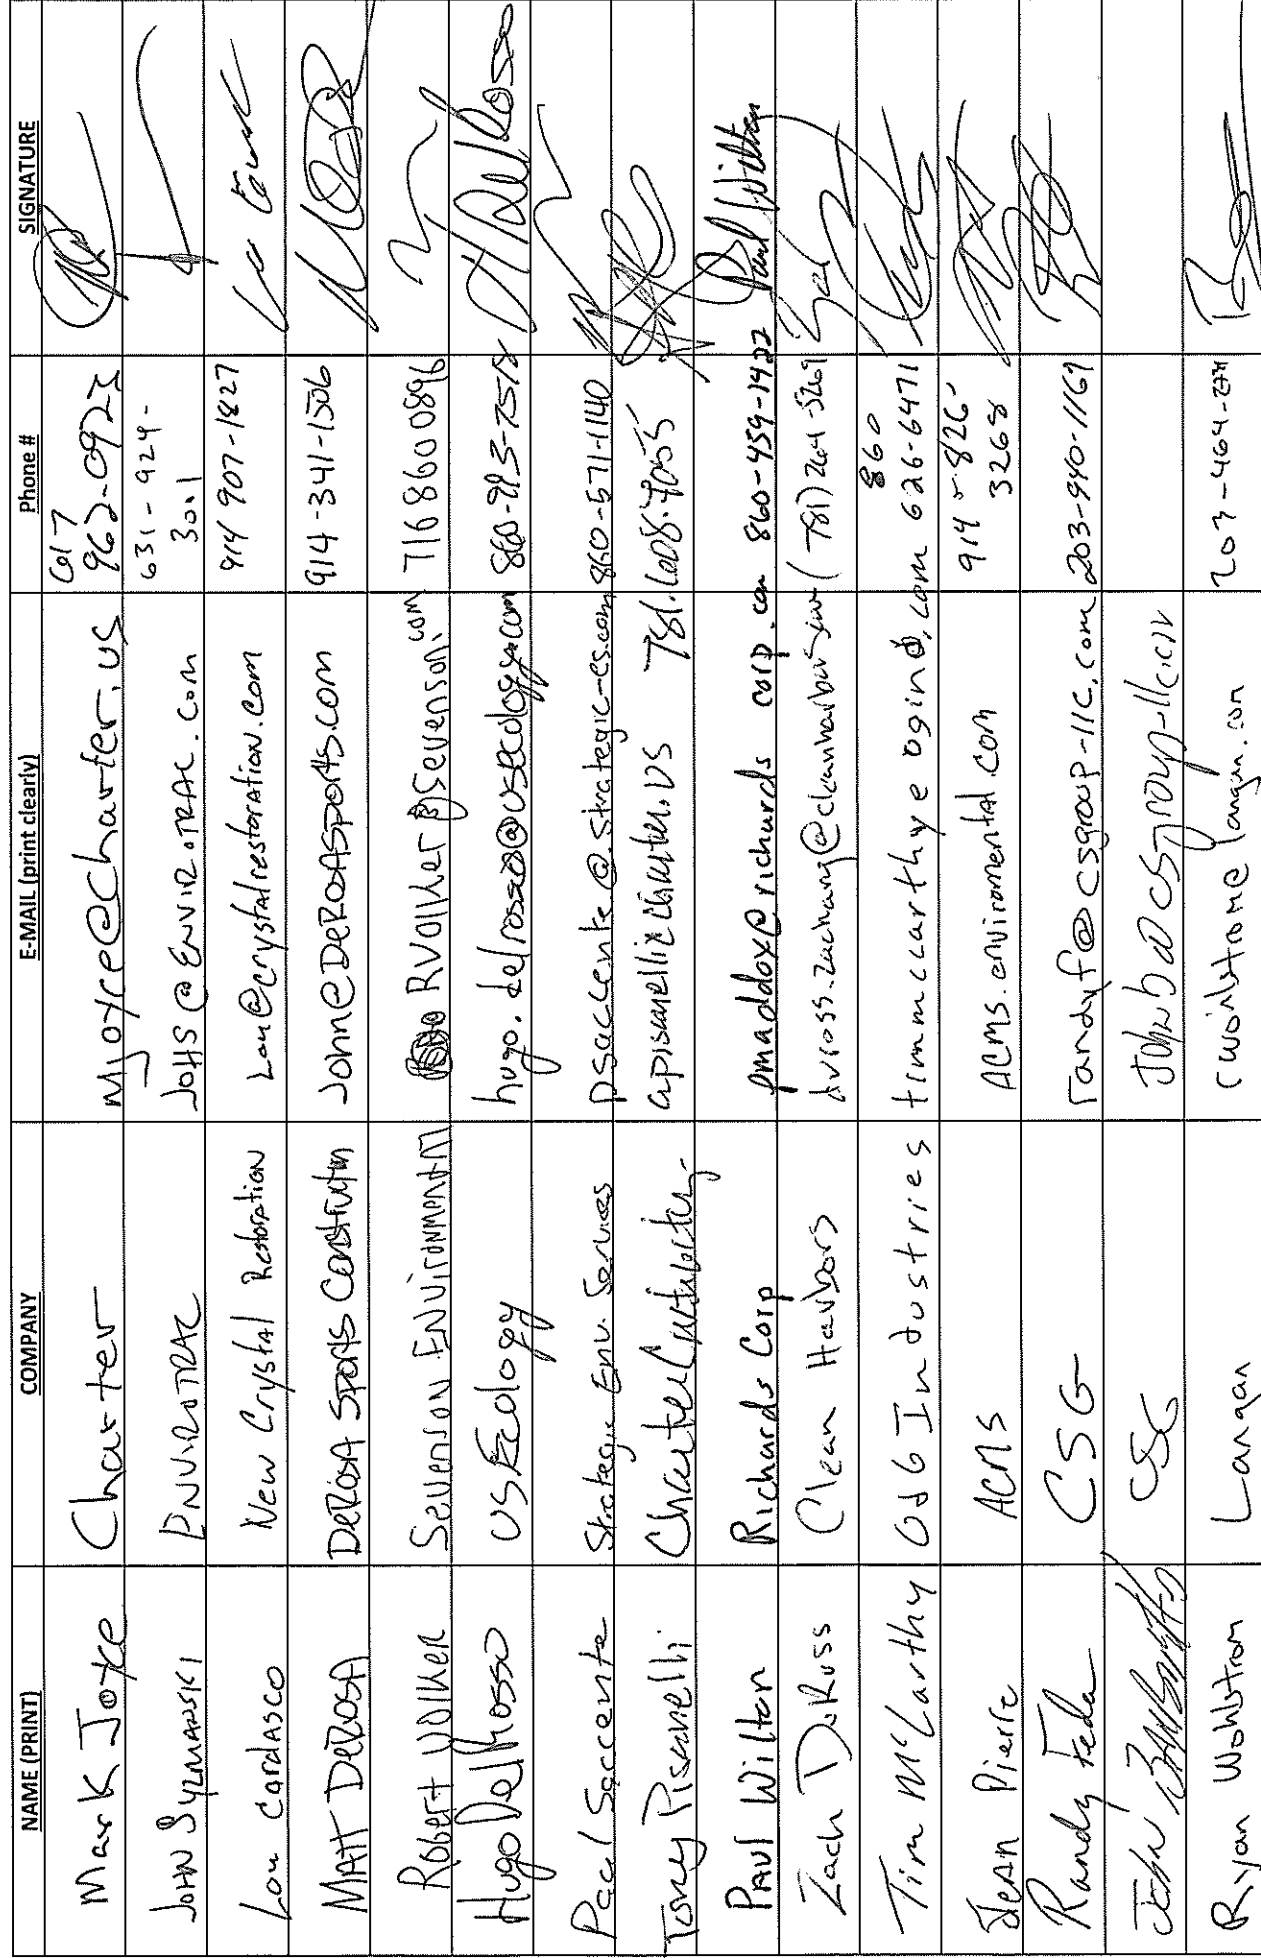 NAME (PRINT) COMPANY E-MAIL (print clearly) Phone # SIGNATURE
Mark Joyce Charter mjoyce@charter.us 617 962-0923
JOHN SYZMANSKI ENVIROTRAC JOHS@ENVIROTRAC.com 631-924-3001
Lou Cardasco New Crystal Restoration Lou@crystalrestoration.com 914 907-1827
MATT DEROSA DEROSA SPORTS Construction John@DeROSASports.com 914-341-1506
Robert Volker Sevenson Environmental RVolker@Sevenson.com 716 860 0896
Hugo DelRosso US Ecology hugo.delrosso@usecology.com H DelRosso
Paul Saccente Strategic Env. Services psaccente@strategic-es.com 860-571-1140
Tony Pisanelli Charter Contracting apisanelli@charter.us 781.608.4055
PAUL Wilton Richards Corp pmaddox@richards corp.com 860-459-1422 Paul Wilton
Zach DeRuss Clean Harbors
Tim McCarthy Od6 Industries 860 626-6471
JEAN Pierre ACMS ACMS.enviromental.com 914-826-3268
Randy Feda CSG randyf@csgroup-llc.com 203-940-1169
John CSG
Ryan Wohlstrom Langan rwohlstrom@langan.com